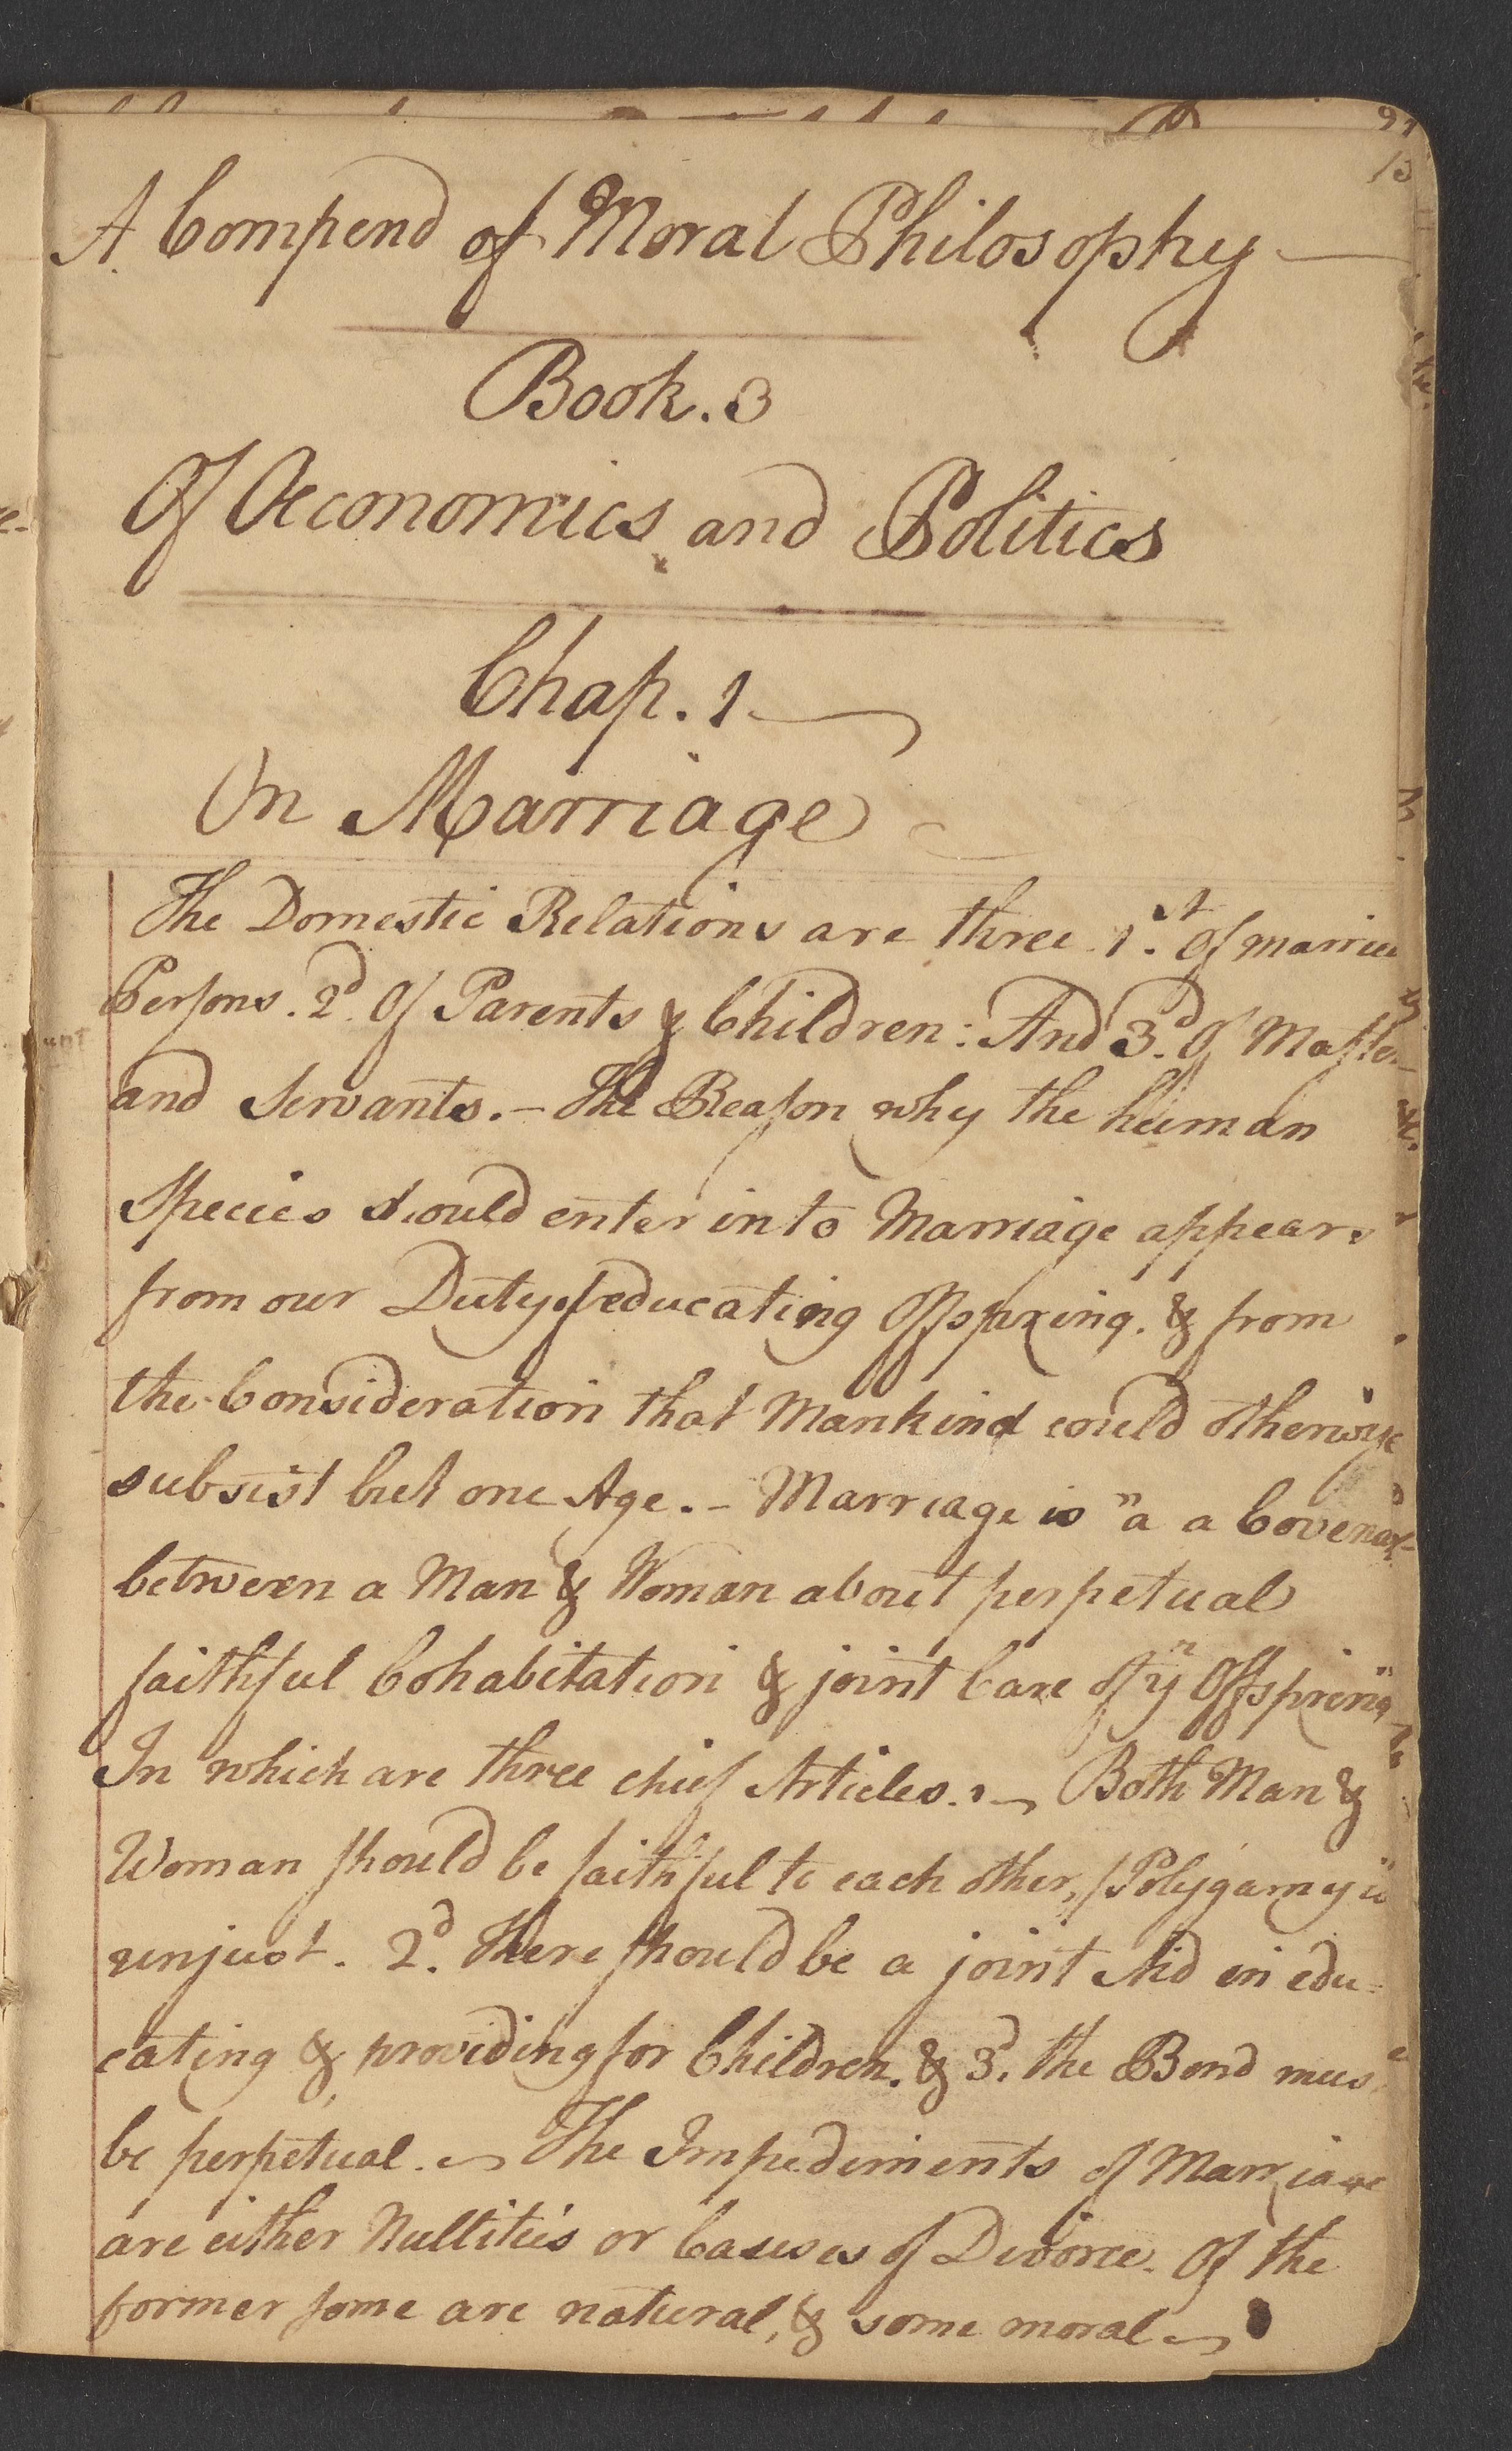 A Compend of Moral Philosophy —
Book. 3
Of Oeconomics and Politics
Chap. 1
On Marriage
The Domestic Relations are three. 1st. Of married
Persons. 2d. Of Parents & Children: And 3d. Of Master
and Servants. – The Reason why the human
Species should enter into Marriage appears
from our Duty of educating Offspring. & from
the Consideration that Mankind could otherwise
subsist but one Age. – Marriage is "a a Covenant
between a Man & Woman about perpetual
faithful Cohabitation & joint Care of yn Offspring"
In which are three chief Articles. 1 — Both Man &
Woman should be faithful to each other, /Polygamy is
unjust. 2d. There should be a joint Aid in edu-
cating & providing for Children. & 3d. the Bond mus
be perpetual. — The Impediments of Marriage
are either Nullities or Causes of Divorce. Of the
former some are natural, & some moral —